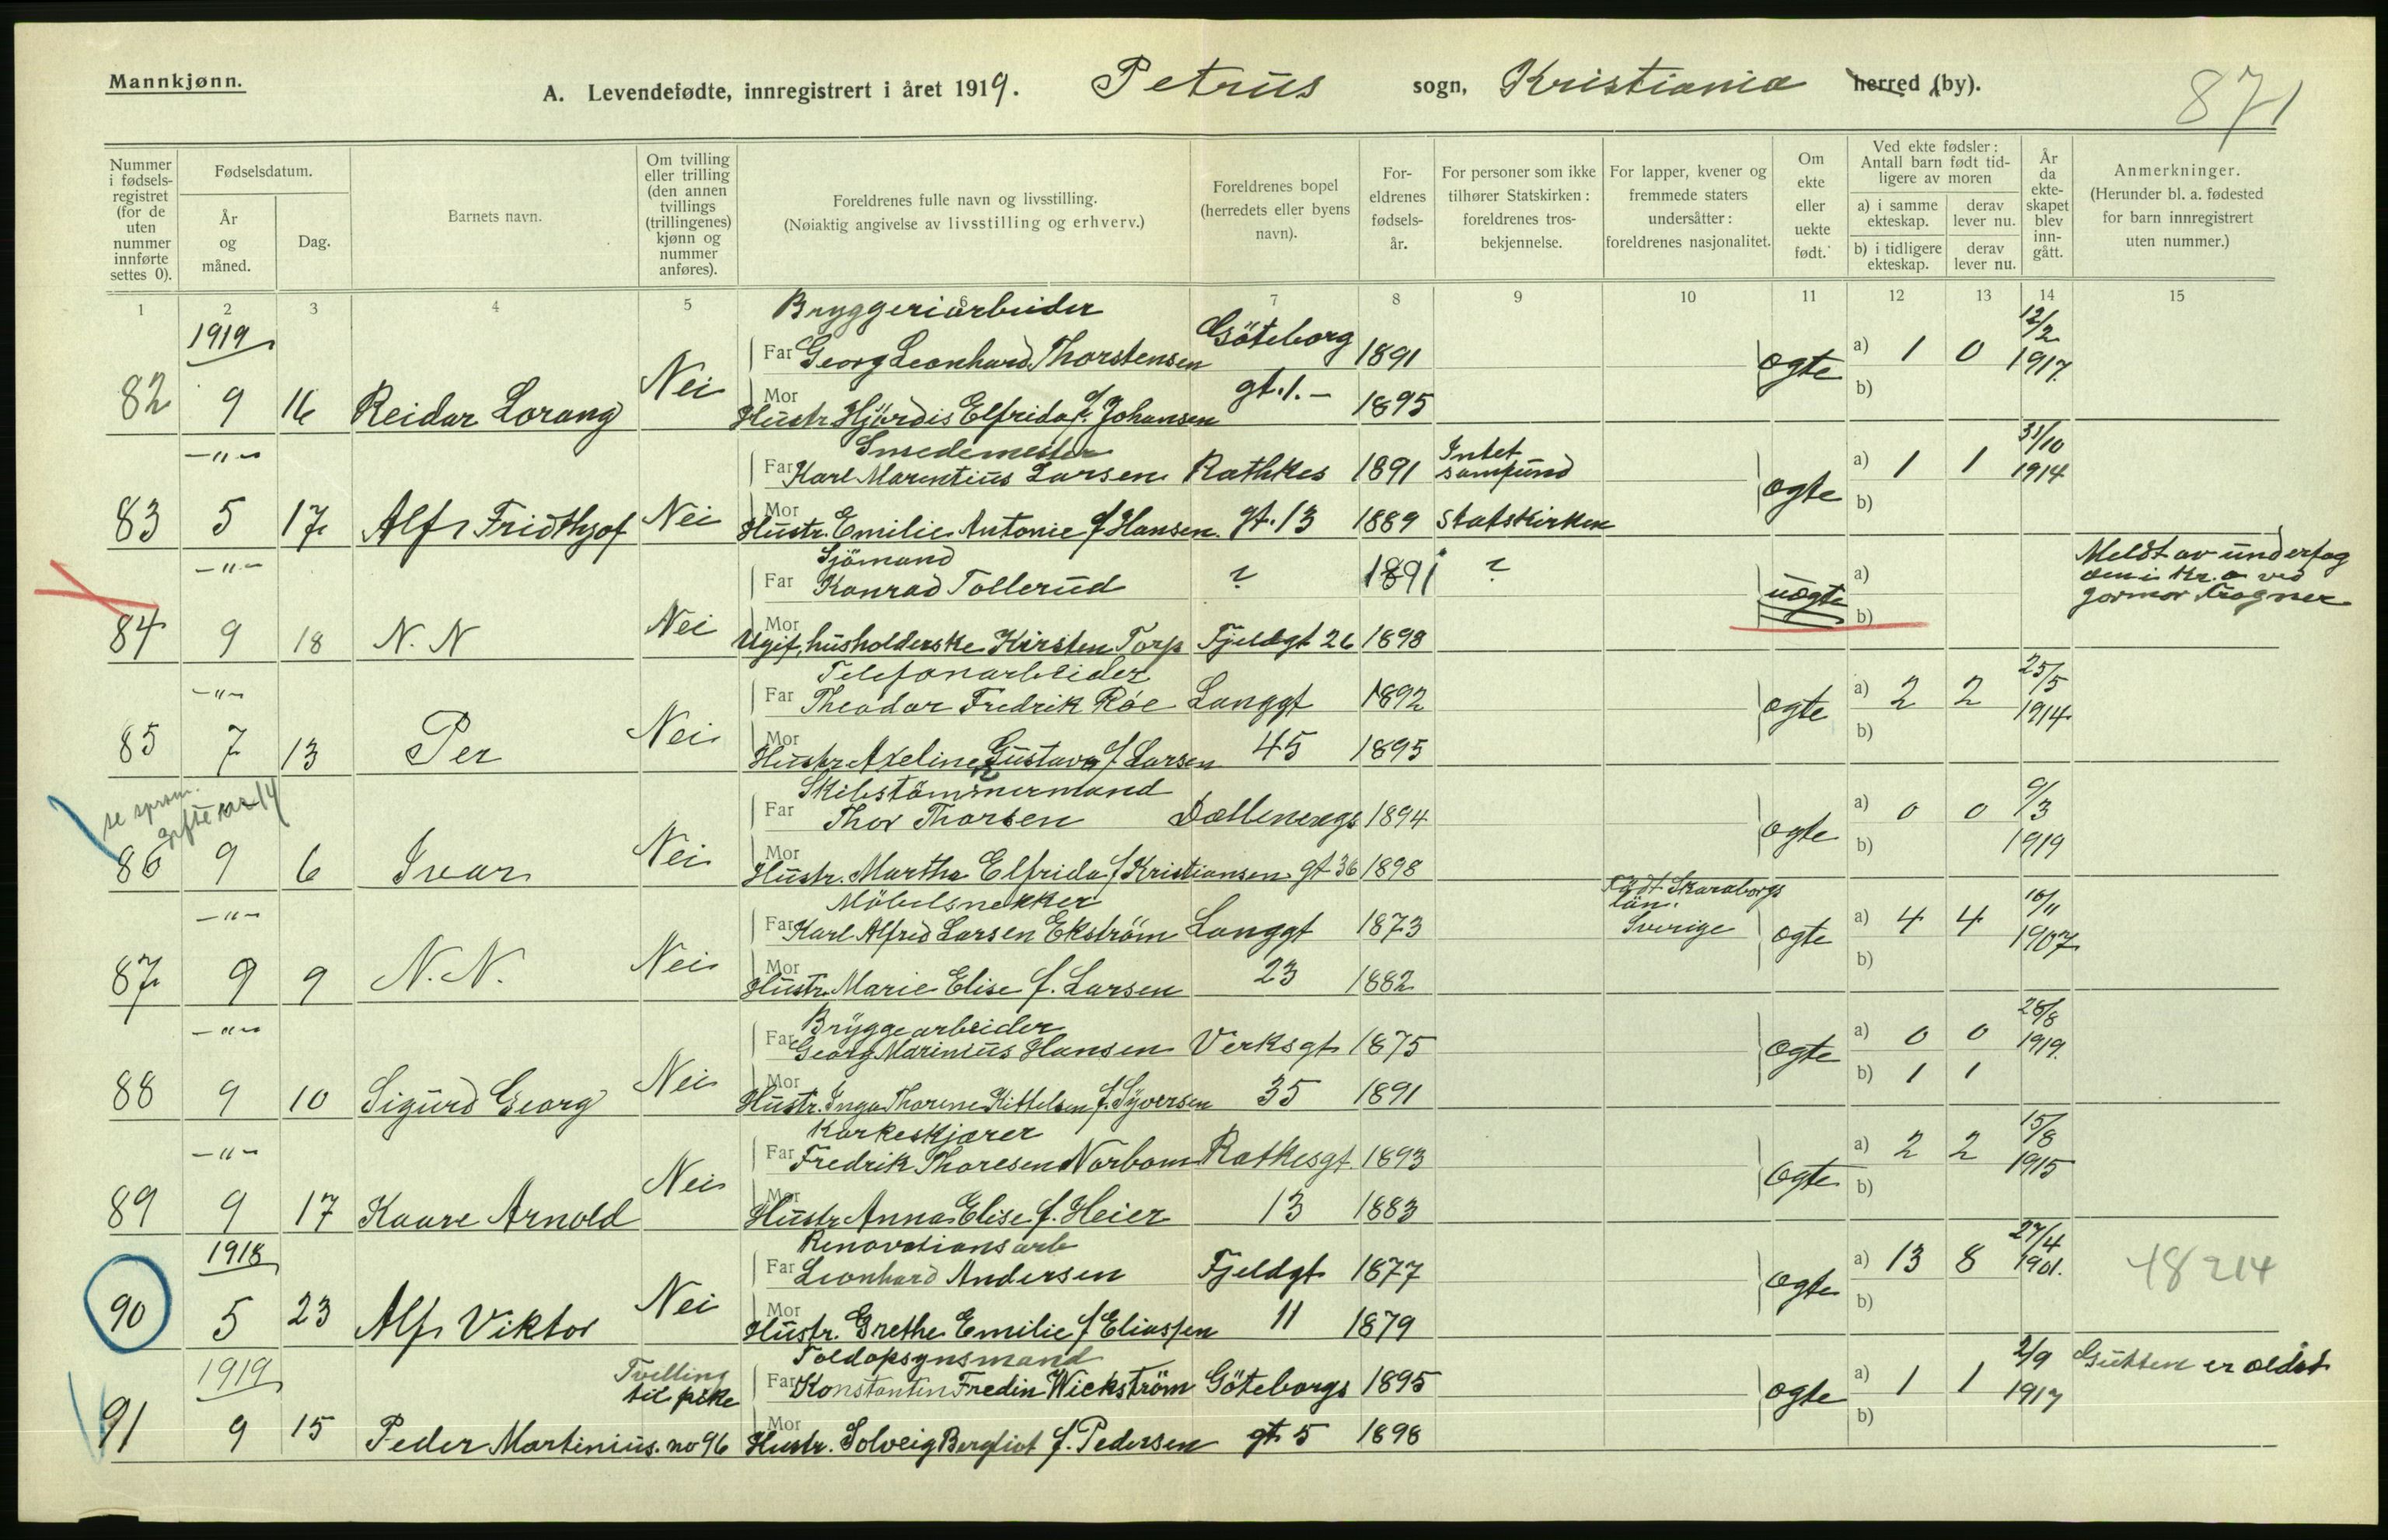 Mannkjønn.
A. Levendefødte, innregistrert i året 1919. Petrus sogn, Kristiania herred (by).
871
Nummer i fødsels-registret (for de uten nummer innførte settes 0).
Fødselsdatum.
År og måned.
Dag.
Barnets navn.
Om tvilling eller trilling (den annen tvillings (trillingenes) kjønn og nummer anføres).
Foreldrenes fulle navn og livsstilling.
(Nøiaktig angivelse av livsstilling og erhverv.)
Foreldrenes bopel (herredets eller byens navn).
For-eldrenes fødsels-år.
For personer som ikke tilhører Statskirken: foreldrenes tros-bekjennelse.
For lapper, kvener og fremmede staters undersåtter: foreldrenes nasjonalitet.
Om ekte eller uekte født.
Ved ekte fødsler: Antall barn født tid-ligere av moren
a) i samme ekteskap.
derav lever nu.
b) i tidligere ekteskap.
derav lever nu.
År da ekte-skapet blev inn-gått.
Anmerkninger.
(Herunder bl. a. fødested for barn innregistrert uten nummer.)
1 2 3 4 5 6 7 8 9 10 11 12 13 14 15
1919 Bryggeriarbeider 12/2
Far Georg Leonhard Thorstensen Göteborg 1891 ogte a) 1 0 1917
82 9 16 Reidar Lorang Nei Mor Hustr. Hjørdis Elfrida f. Johansen gt. 1.- 1895 b)
-"- Smedemester 31/10
Far Karl Marentius Larsen Rathkes 1891 Intet samfund ogte a) 1 1 1914
83 5 17 Alf Fridthjof Nei Mor Hustr. Emilie Antonie f Hansen gt. 13 1889 Statskirken b)
-"- Sjömand
Far Konrad Tollerud ? 1891 ? uægte a) Meldt av underfog
84 9 18 N. N Nei Mor Ugif. husholderske Kirsten Torp Fjeldgt 26 1898 b)
Telefonarbeider 25/5
-"- Far Theodor Fredrik Róe Langgt 1892 ogte a) 2 2 1914
85 7 13 Per Nei Mor Hustr Axeline Gustava f. Larsen 45 1895 b)
gifte mar 14
Skibstömmermand 9/3
Far Thor Thorsen Dællenengs 1894 ogte a) 0 0 1919
86 9 6 Ivar Nei Mor Hustr. Martha Elfrida f Kristiansen gt 36 1898 b)
-"- Möbelsnekker Födt Skaraborgs län. 10/11
Far Karl Alfred Larsen Ekström Langgt 1873 Sverige ogte a) 4 4 1907
87 9 9 N. N. Nei Mor Hustr. Marie Elise f. Larsen 23 1882 b)
-"- Bryggearbeider 28/8
Far Georg Marinius Hansen Verksgt 1875 ogte a) 0 0 1919.
88 9 10 Sigurd Georg Nei Mor Hustr. Inga Thorene Kittelsen f. Syversen 35 1891 b) 1 1
Korkeskjærer 15/8
-"- Far Fredrik Thoresen Norbom Ratkesgt 1893 ogte a) 2 2 1915
89 9 17 Kaare Arnold Nei Mor Hustr Anna Elise f. Heier 13 1883 b)
1918 Renovationsarb 27/4
Far Leonhard Andersen Fjeldgt 1877 ogte a) 13 8 1901. 48214
90 5 23 Alf Viktor Nei Mor Hustr. Grethe Emilie f Eliassen 11 1879 b)
1919 Toldopsynsmand 2/9
Tvilling til pike Far Konstantin Fredin Wickström Göteborgs 1895 ogte a) 1 1 1917 Gutten er ældst
91 9 15 Peder Martinius. no 96 Mor Hustr. Solveig Bergliot f. Pedersen gt. 5 1898 b)